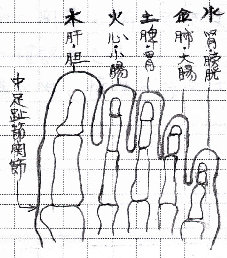 木 肝・胆
火 心・小腸
土 脾・胃
金 肺・大腸
水 腎・膀胱
中足趾節関節